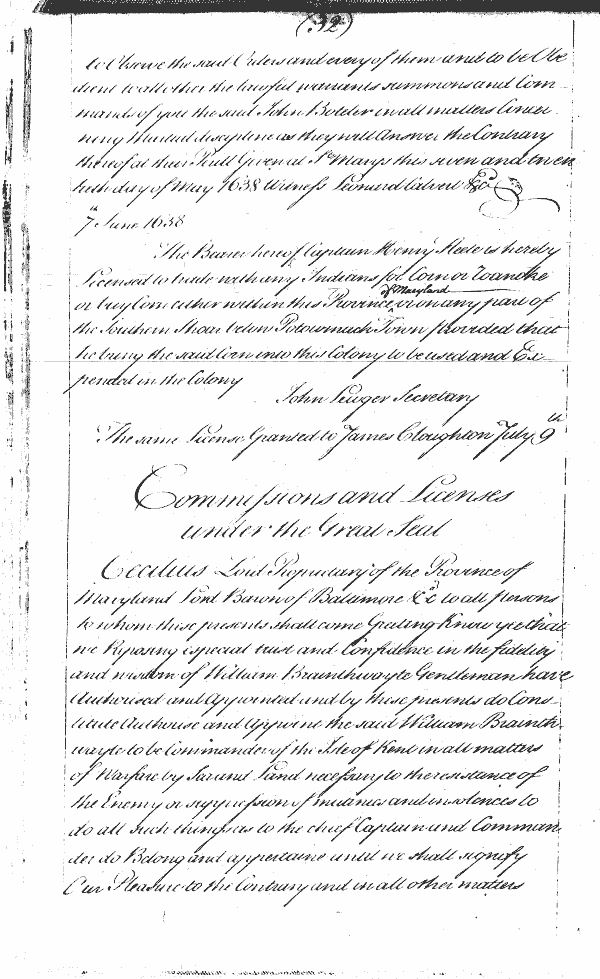 (32)
to Observe the said Orders and every of them and to be Obe
dient to all other the lawful warrants summons and Com
mands of you the said John Boteler in all matters Concer
ning Martial discipline as they will Answer the Contrary
thereof at their Perill Given at St Marys this seven and twen
tieth day of May 1638 Witness Leonard Calvert &ca
7th June 1638
The Bearer hereof Captain Henry Fleete is hereby
Licensed to trade with any Indians for Corn or Roanoke
or buy Corn either within this Province of Maryland or on any part of
the Southern Shoar below Potowmack Town provided that
he bring the said Corn into this Colony to be used and Ex-
pended in the Colony
John Lewger Secretary
The same License Granted to James Cloughton July 9th
Commissions and Licenses
under the Great Seal
Cecilius Lord Proprietary of the Province of
Maryland Lord Baron of Baltimore &ca to all persons
to whom these presents shall come Greeting Know yee that
we Reposing especial trust and Confidence in the fidelity
and wisdom of William Brainthwayte Gentleman have
Authorised and Appointed and by these presents do Cons-
titute Authorise and Appoint the said William Brainth
wayte to be Commander of the Isle of Kent in all matters
of Warfare by Sea and Land necessary to the resistance of
the Enemy or suppression of mutinies and insolencies to
do all such things as to the chief Captain and Comman
der do Belong and appertaine until we shall signify
Our Pleasure to the Contrary and in all other matters